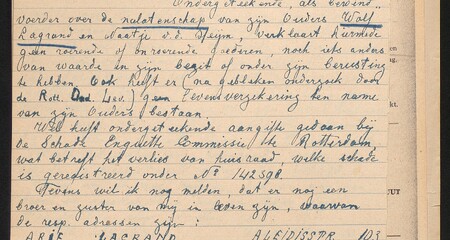 Ondergeteekende, als bewind
voerder over de nalatenschap van zijn Ouders Wolf
Lagrand en Naatje v.d. Sluijm, verklaart hiermede
geen roerende of onroerende goederen, noch iets anders
van waarde in zijn bezit of onder zijn berusting
te hebben. Ook heeft er (na gebleken onderzoek door
de Rott. Lev.) geen levensverzekering ten name
van zijn Ouders bestaan.
Wel heeft ondergeteekende aangifte gedaan bij
de Schade Enquête Commissie te Rotterdam,
wat betreft het verlies van huisraad, welke schade
is geregistreerd onder No 142598.
Tevens wil ik nog melden, dat er nog een
broer en zuster van mij in leven zijn, waarvan
de resp. adressen zijn:
ARIE LAGRAND ALEIDISSTR 103
kt.
JUT